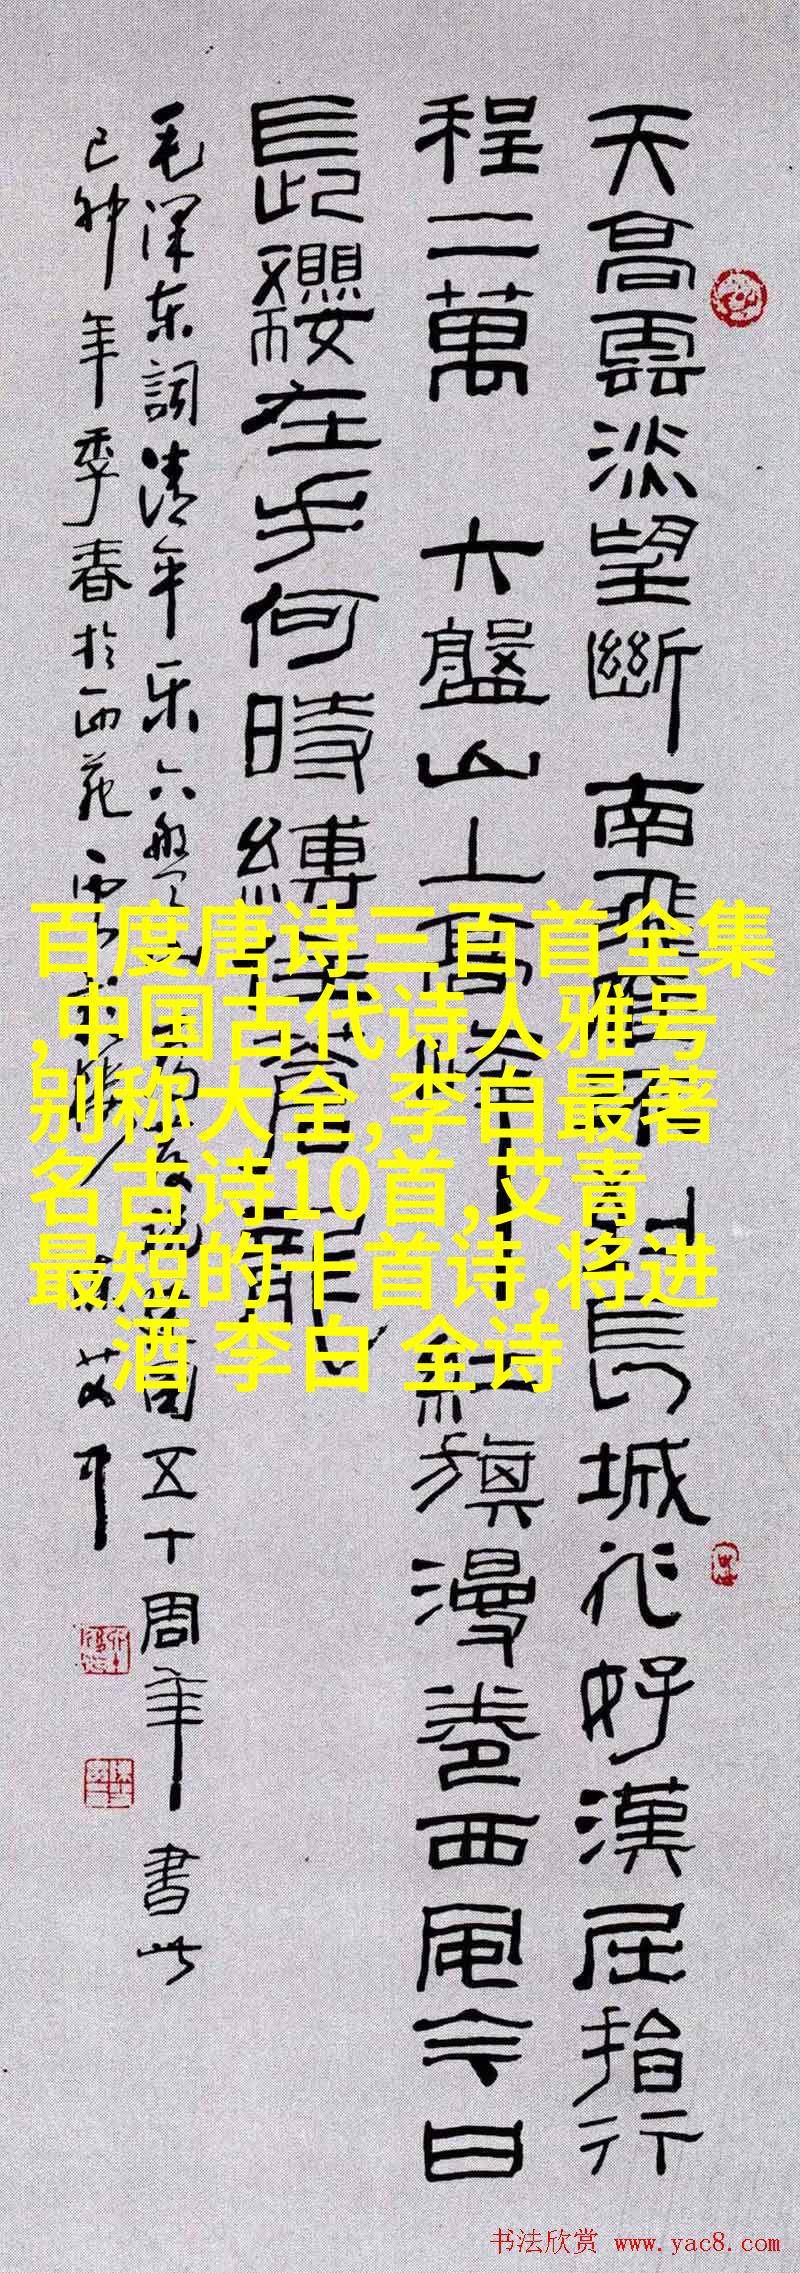 天高雲淡望斷南飛雁不到長城非好漢屈指行
程二萬 六盤山上高峰 紅旗漫卷西風今日
長纓在手何時縛住蒼龍
毛澤东詞清平乐六盤山 国五十周年書此
己卯年季春於西苑
百度唐诗三百首全集
,中国古代诗人雅号
别称大全,李白最著
名古诗10首,艾青
最短的十首诗,将进
酒 李白 全诗
书法欣赏 www.yac8.com